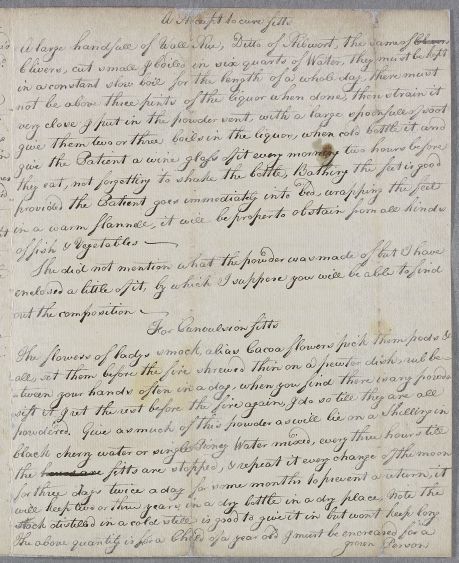 A Receipt to cure fitts
A large handfull of Wall Rue, Ditto of Ribwort, the same of
Clivers, cut small & boiled in six quarts of Water, they must be kept
in a constant slow boil for the length of a whole day, there must
not be above three pints of the liquor when done, then strain it
very close & put in the powder sent, with a large spoonfull of soot
give them two or three boils in the liquor, when cold bottle it and
give the Patient a wine glass of it every morning two hours before
they eat, not forgetting to shake the bottle, Bathing the feet is good
provided the Patient goes immediately into bed, wrapping the feet
in a warm flannell, it will be proper to abstain from all kinds
of fish & Vegetables
She did not mention what the powder was made of but I have
enclosed a little of it, by which I suppose you will be able to find
out the composition
For Convulsion fitts
The flowers of ladys smock, alias Cacoa flowers pick them pods &
all, set them before the fire shrewed thin on a pewter dish, rub be
tween your hands often in a day, when you find there is any powder
sift it & set the rest before the fire again, & do so till they are all
powdered. Give as much of this powder as will lie on a Shilling in
black cherry water or single Piony Water mixed, every three hours till
the fitts are stopped, & repeat it every change of the moon
for three days twice a day for some months to prevent a return, it
will keep two or three years, in a dry bottle in a dry place, Note the
distilled in a cold still is good to give it in but wont keep long
The above quantity is for a Child of a year old & must be encreased for a
grown Person